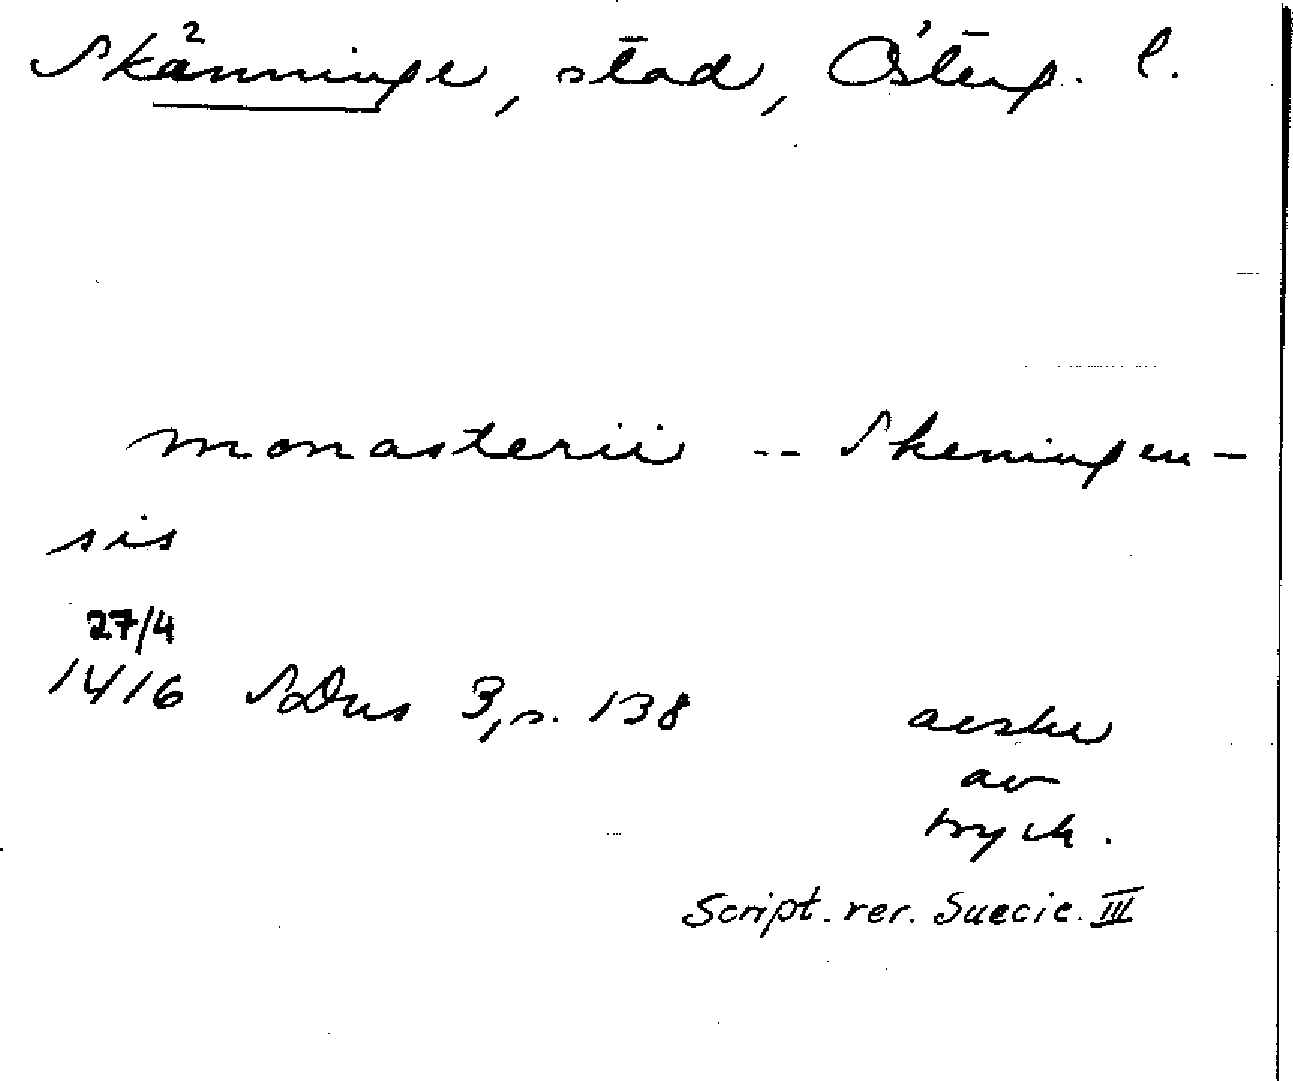 Skänninge, stad, Österg. l.
monasterii -- Skeningen-
sis
27/4
1416 SDns 3, s. 138
avskr
av
tryck.
Script. rer. Suecic. III